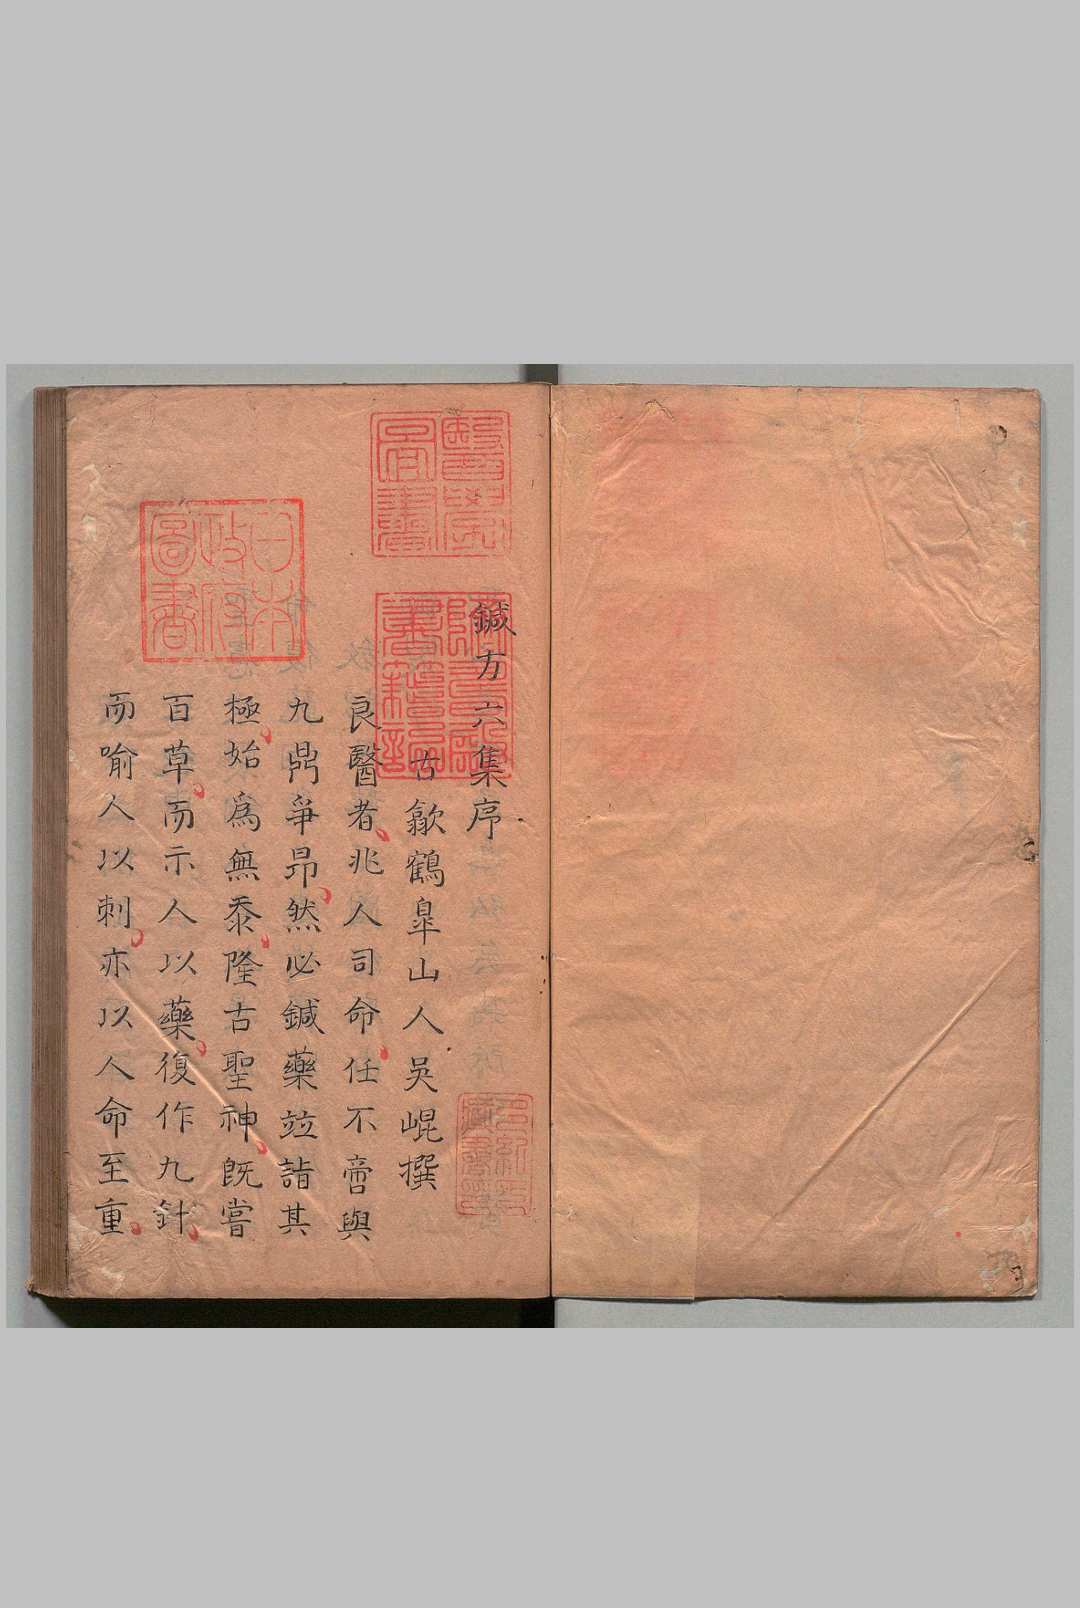 鍼方六集序
古歙鶴臯山人吳崐撰
良醫者兆人司命任不啻與
九鼎爭昂然必鍼藥竝詣其
極始爲無忝隆古聖神旣嘗
百草而示人以藥復作九針
而喻人以刺亦以人命至重
醫學圖書
日本政府圖書